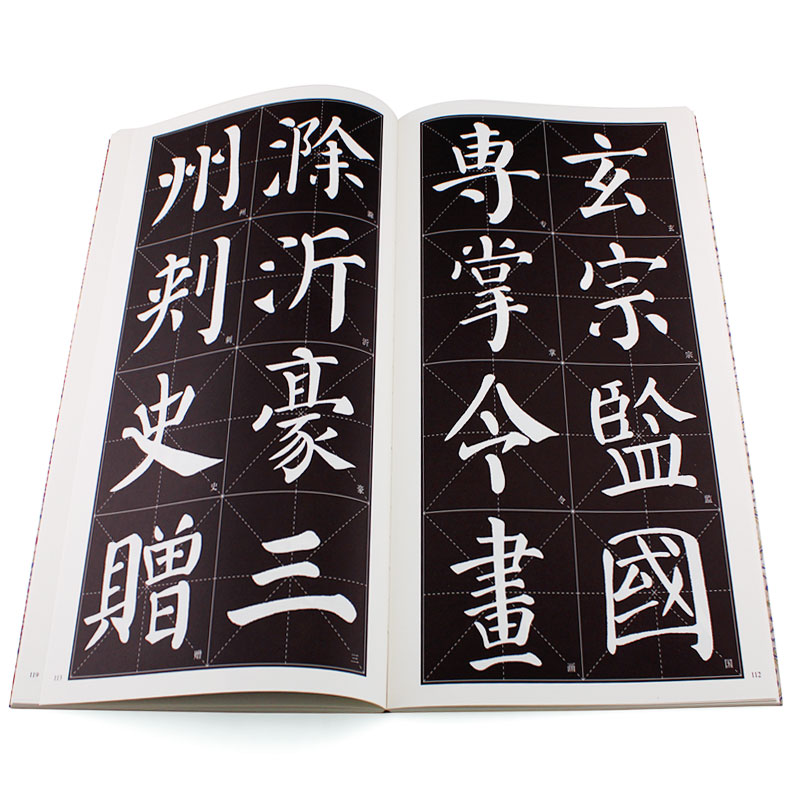 玄宗監國
専掌令畫
滁沂豪三
州刾史贈
玄
宗
监
国
专
掌
令
画
滁
沂
豪
三
州
刺
史
赠
112
119